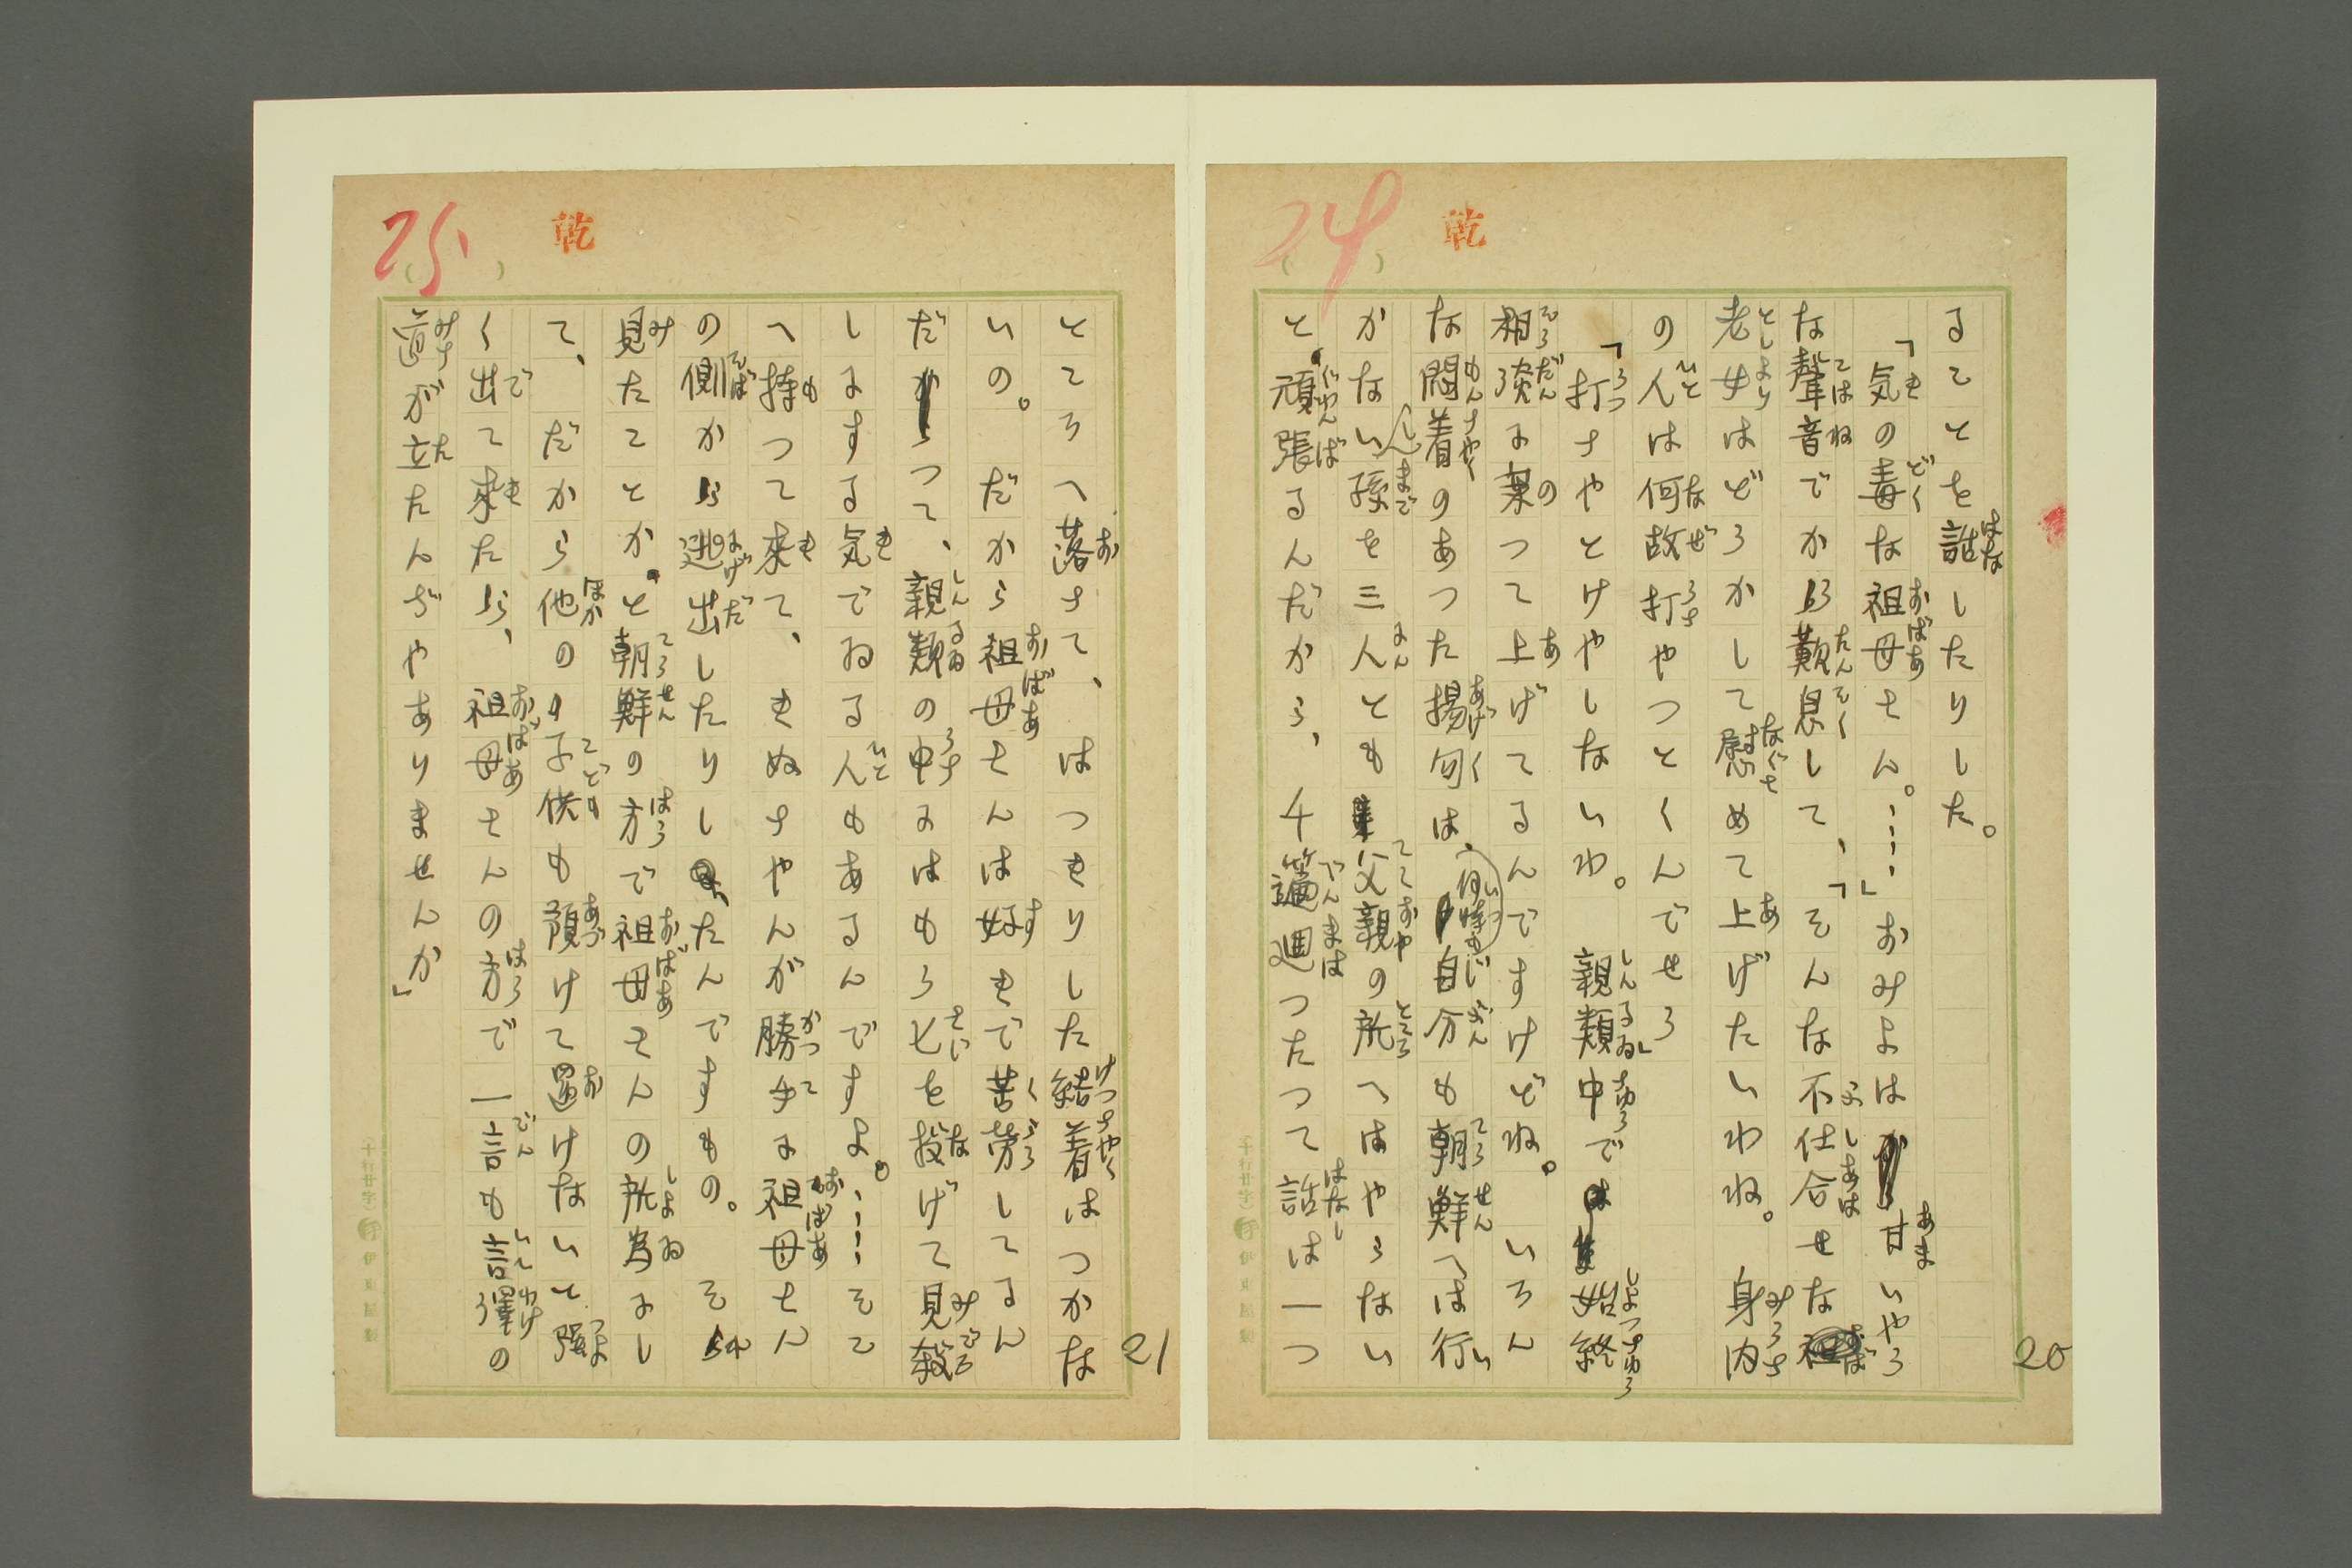 24
乾
20
ることを話したりした。
「気の毒な祖母さん。……」おみよは甘いやう
な聲音でから歎息して、「そんな不仕合せな
老女はどうかして慰めて上げたいわね。身内
の人は何故打ちやつとくんでせう
「打ちやとけやしないわ。親類中では始終
相談に乗つて上げてるんですけどね。いろん
な悶着のあつた揚句は、何時も自分も朝鮮へは行
かないし、孫を三人とも父親の所へはやらない
と頑張るんだから、千篇週つたつて話は一つ
25
乾
21
ところへ落ちて、はつきりした結着はつかな
いの。だから祖母さんは好きで苦勞してるん
だつて、親類の中にはもう匕を投げて見殺
しにする気でゐる人もあるんですよ。……そこ
へ持つて来て、きぬちやんが勝手に祖母さん
の側から逃出したりしたんですもの。そら
見たことかと朝鮮の方で祖母さんの所為にし
て、だから他の子供も預けて置けないと強
く出て来たら、祖母さんの方で一言も言譯の
道が立たんぢやありませんか」
十行廿字
伊東屋製